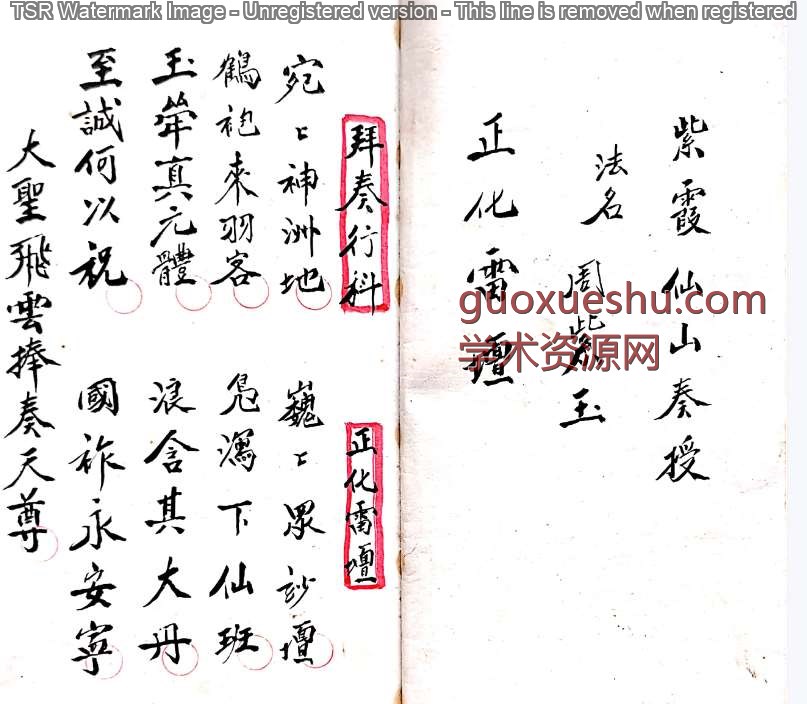 TSR Watermark Image - Unregistered version - This line is removed when registered
紫霞仙山奏授
法名 周紫玉
正化雷壇
拜奏行科 正化雷壇
宛〻神洲地 巍〻眾玅壇
鶴袍來羽客 凫瀉下仙班
玉真元體 浪含其大丹
至誠何以祝 國祚永安寧
大聖飛雲捧奏天尊
guoxueshu.com
学术资源网